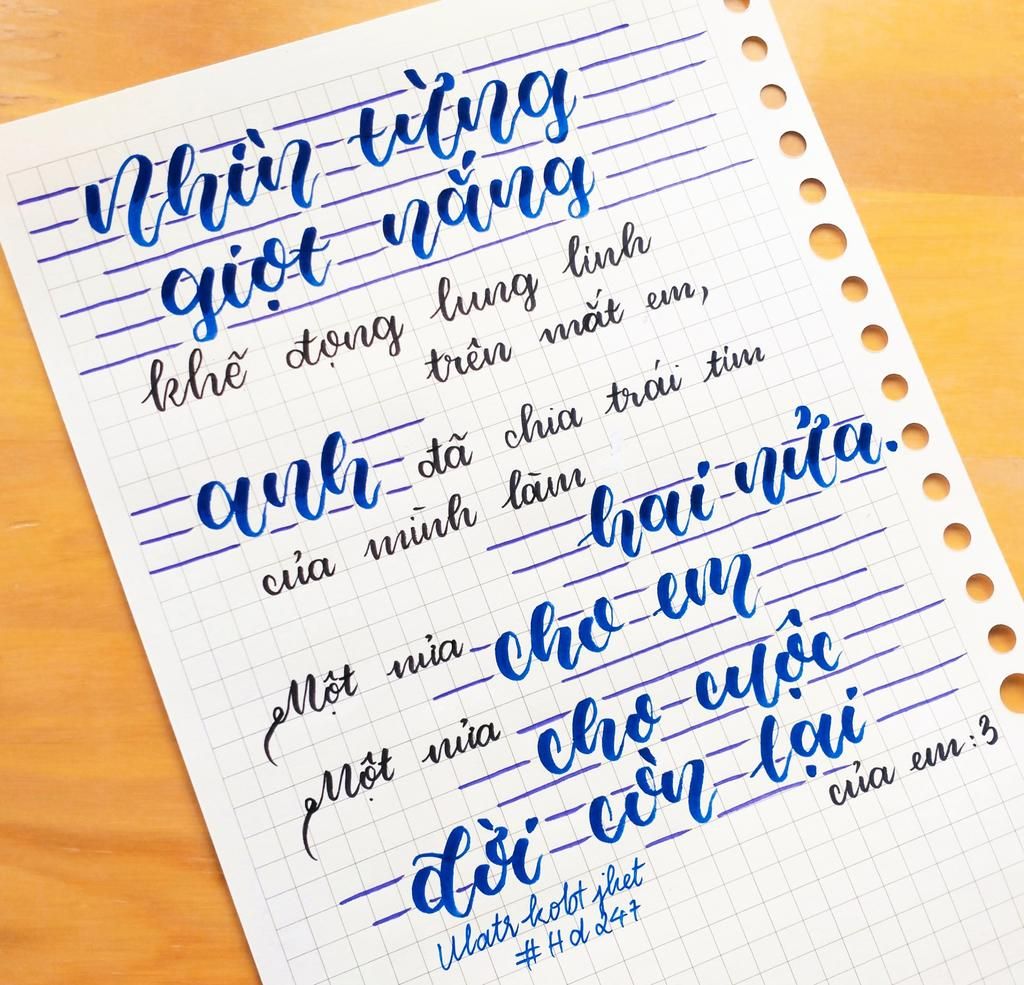 Nhìn từng
giọt nắng
khẽ đọng lung linh
trên mắt em,
anh đã chia trái tim
của mình làm
hai nửa.
Một nửa cho em
Một nửa cho cuộc
đời còn lại
của em :3
#Hd247